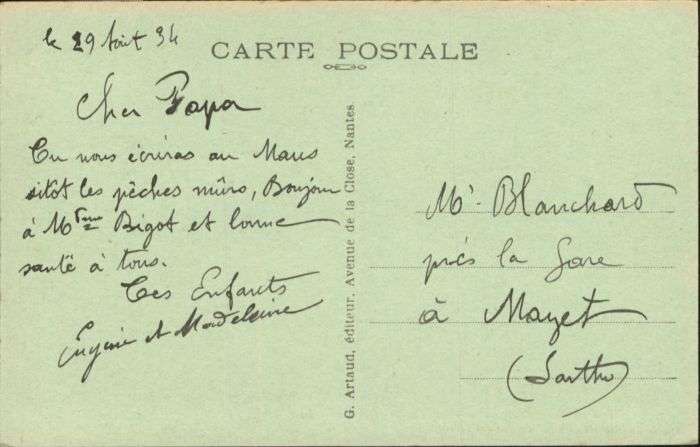 le 29 Août 34
CARTE POSTALE
Cher Papa
Tu nous écriras au Mans
sitôt les pêches mûrs, Bonjour
à Mme Bigot et bonne
santé à tous.
Tes Enfants
Eugène et Madeleine
G. Artaud, éditeur, Avenue de la Close, Nantes
Mr Blanchard
près la Gare
à Mayet
(Sarthe)